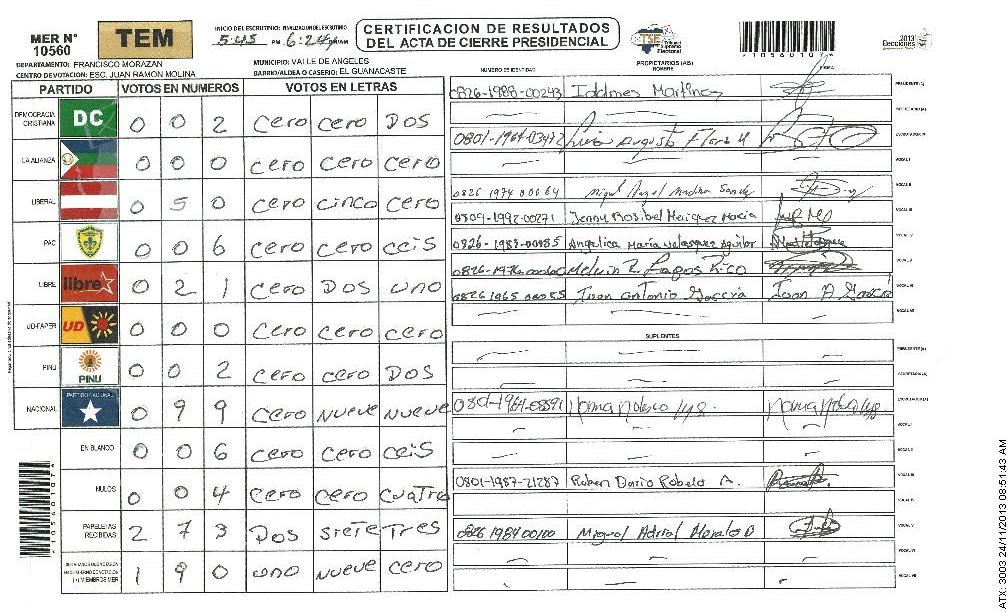 MER N° 10560
TEM
INICIO DEL ESCRUTINIO: FINALIZACION DEL ESCRUTINIO:
5:45 PM 6:24 PM
CERTIFICACION DE RESULTADOS
DEL ACTA DE CIERRE PRESIDENCIAL
TSE Tribunal Supremo Electoral
2013 Elecciones
DEPARTAMENTO: FRANCISCO MORAZAN
MUNICIPIO: VALLE DE ANGELES
CENTRO DE VOTACION: ESC. JUAN RAMON MOLINA
BARRIO/ALDEA O CASERIO: EL GUANACASTE
PARTIDO VOTOS EN NUMEROS VOTOS EN LETRAS
DEMOCRACIA CRISTIANA DC 0 0 2 cero cero DOS
LA ALIANZA 0 0 0 cero cero cero
LIBERAL 0 5 0 cero cinco cero
PAC 0 0 6 cero cero ceis
LIBRE libre 0 2 1 cero DOS uno
UD-FAPER UD 0 0 0 cero cero cero
PINU PINU 0 0 2 cero cero DOS
NACIONAL PARTIDO NACIONAL 0 9 9 cero nueve nueve
EN BLANCO 0 0 6 cero cero ceis
NULOS 0 0 4 cero cero cuatro
PAPELETAS RECIBIDAS 2 7 3 DOS siete Tres
(+) MIEMBROS MER 1 9 0 uno nueve cero
PROPIETARIOS (AS)
NUMERO DE IDENTIDAD NOMBRE FIRMA
0826-1988-00243 Martinez PRESIDENTE(A)
SECRETARIO(A)
0801-1964-03472 Luis Augusto Flores ESCRUTADOR(A)
VOCAL I
0826 1974 00064 Miguel Angel Medina VOCAL II
0809-1992-00271 Jenny VOCAL III
0826-1987-00485 Angelica Maria Velasquez Aguilar VOCAL IV
Melvin Lagos Rico VOCAL V
0826 1965 00055 Juan Antonio Garcia Juan A Garcia VOCAL VI
VOCAL VII
SUPLENTES
PRESIDENTE(A)
SECRETARIO(A)
ESCRUTADOR(A)
VOCAL I
VOCAL II
0801-1987-21287 Ruben Dario Robelo A. VOCAL III
VOCAL IV
0826 1984 00100 Miguel VOCAL V
VOCAL VI
VOCAL VII
*10560107*
ATX: 3003 24/11/2013 08:51:43 AM